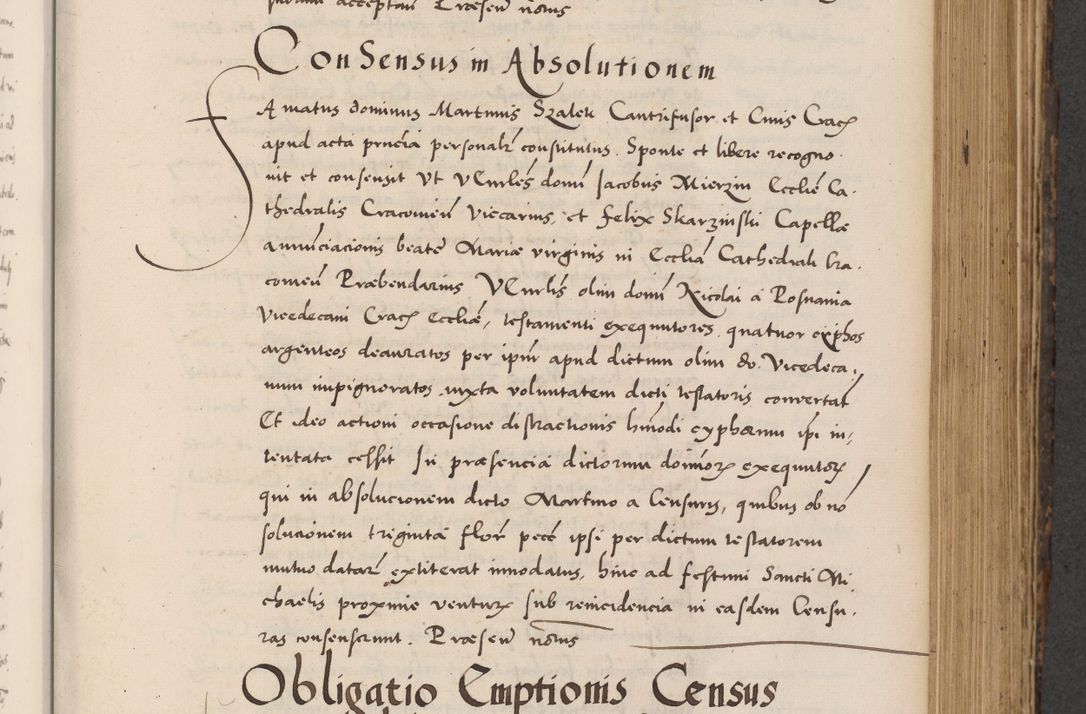 acceptan Præsen notus
ConSensus in Absolutionem
Amatus dominus Martinus Szalek Cantrifusor et Civis Crac
apud acta præsentia personalr constitutus. Sponte et libere recogno-
vit et consensit Vt VEnrles domi Jacobus Mierzin Ecclie Ca-
thedralis Cracovien Viccarius, et Felix Skarzinski Capellæ
annunciacionis beate Mariæ virginis in Ecclia Cathedrali Cra-
covien Præbendarius VEnrlis olim domi Nicolai a Posnania
Vicedecani Crac Eccliæ, testamenti exequutores quatuor cyphos
argenteos deauratos per ipm apud dictum olim do. Vicedeca-
num inpignoratos iuxta voluntatem dicti testatoris convertat
Et ideo actioni occasione distractionis hmodi cyphorum ipi in-
tentata cessit In præsencia dictorum dominor exequutor
qui in absolucionem dicto Martino a Censuris, quibus ob no
solucionem triginta flor pecc ipsi per dictum testatorem
mutuo datar extiterat innodatus, hinc ad festum Sancti Mi-
chaelis proxime ventur sub reincidencia in easdem Censu-
ras consenserunt. Præsen notus
Obligatio Emptionis Census